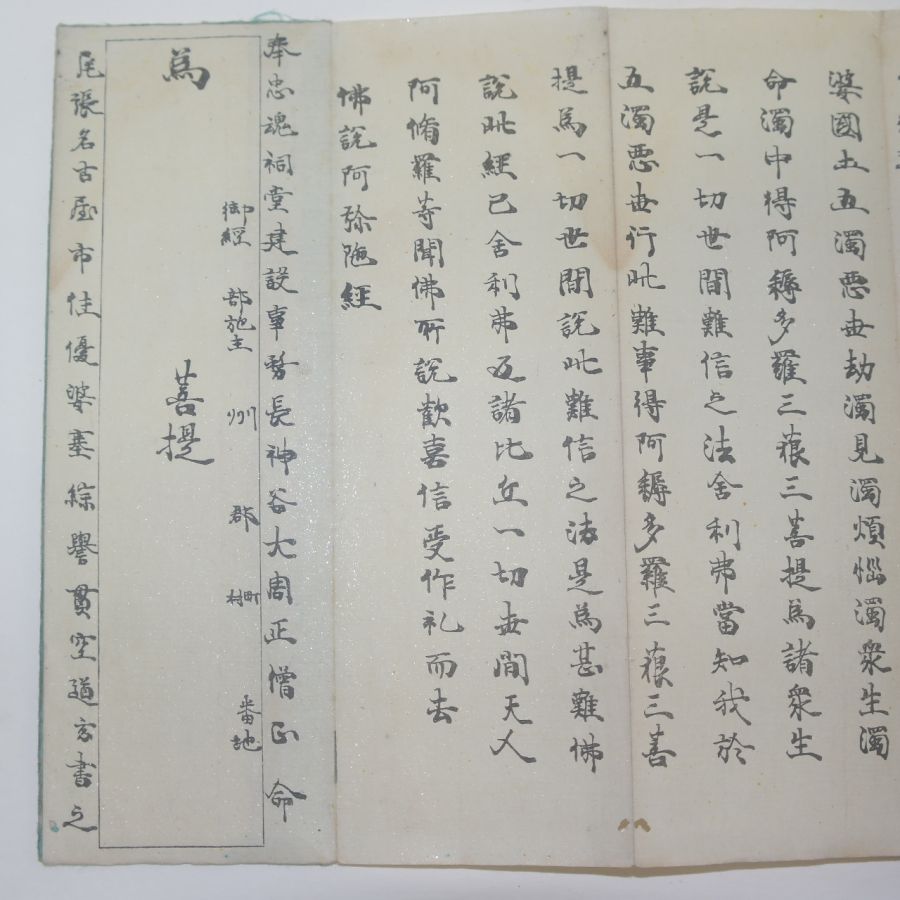 婆國土五濁惡世劫濁見濁煩惱濁衆生濁
命濁中得阿耨多羅三藐三菩提爲諸衆生
說是一切世間難信之法舍利弗當知我於
五濁惡世行此難事得阿耨多羅三藐三菩
提爲一切世間說此難信之法是爲甚難佛
說此經已舍利弗及諸比丘一切世間天人
阿脩羅等聞佛所說歡喜信受作礼而去
佛說阿弥陁經
奉忠魂祠堂建設事務長神谷大周正僧正 命
御經 部施主 州 郡 町村 番地
爲 菩提
尾張名古屋市住優婆塞綜譽貫空道 書之